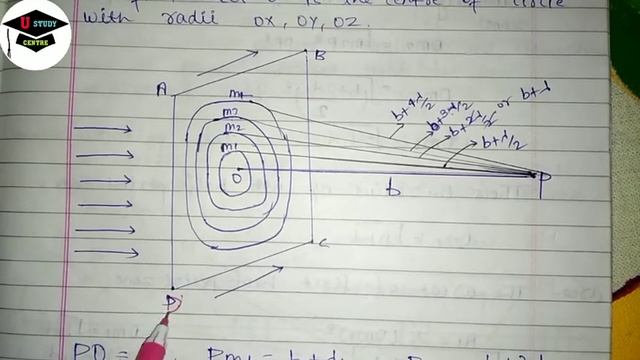 U STUDY CENTRE
is the centre of circle
with radii OX, OY, OZ.
B
A
m4
m3
m2
m1
O
b+4λ/2
b+3λ/2
b+2λ/2 or b+λ
b+λ/2
P
b
C
D
PD =